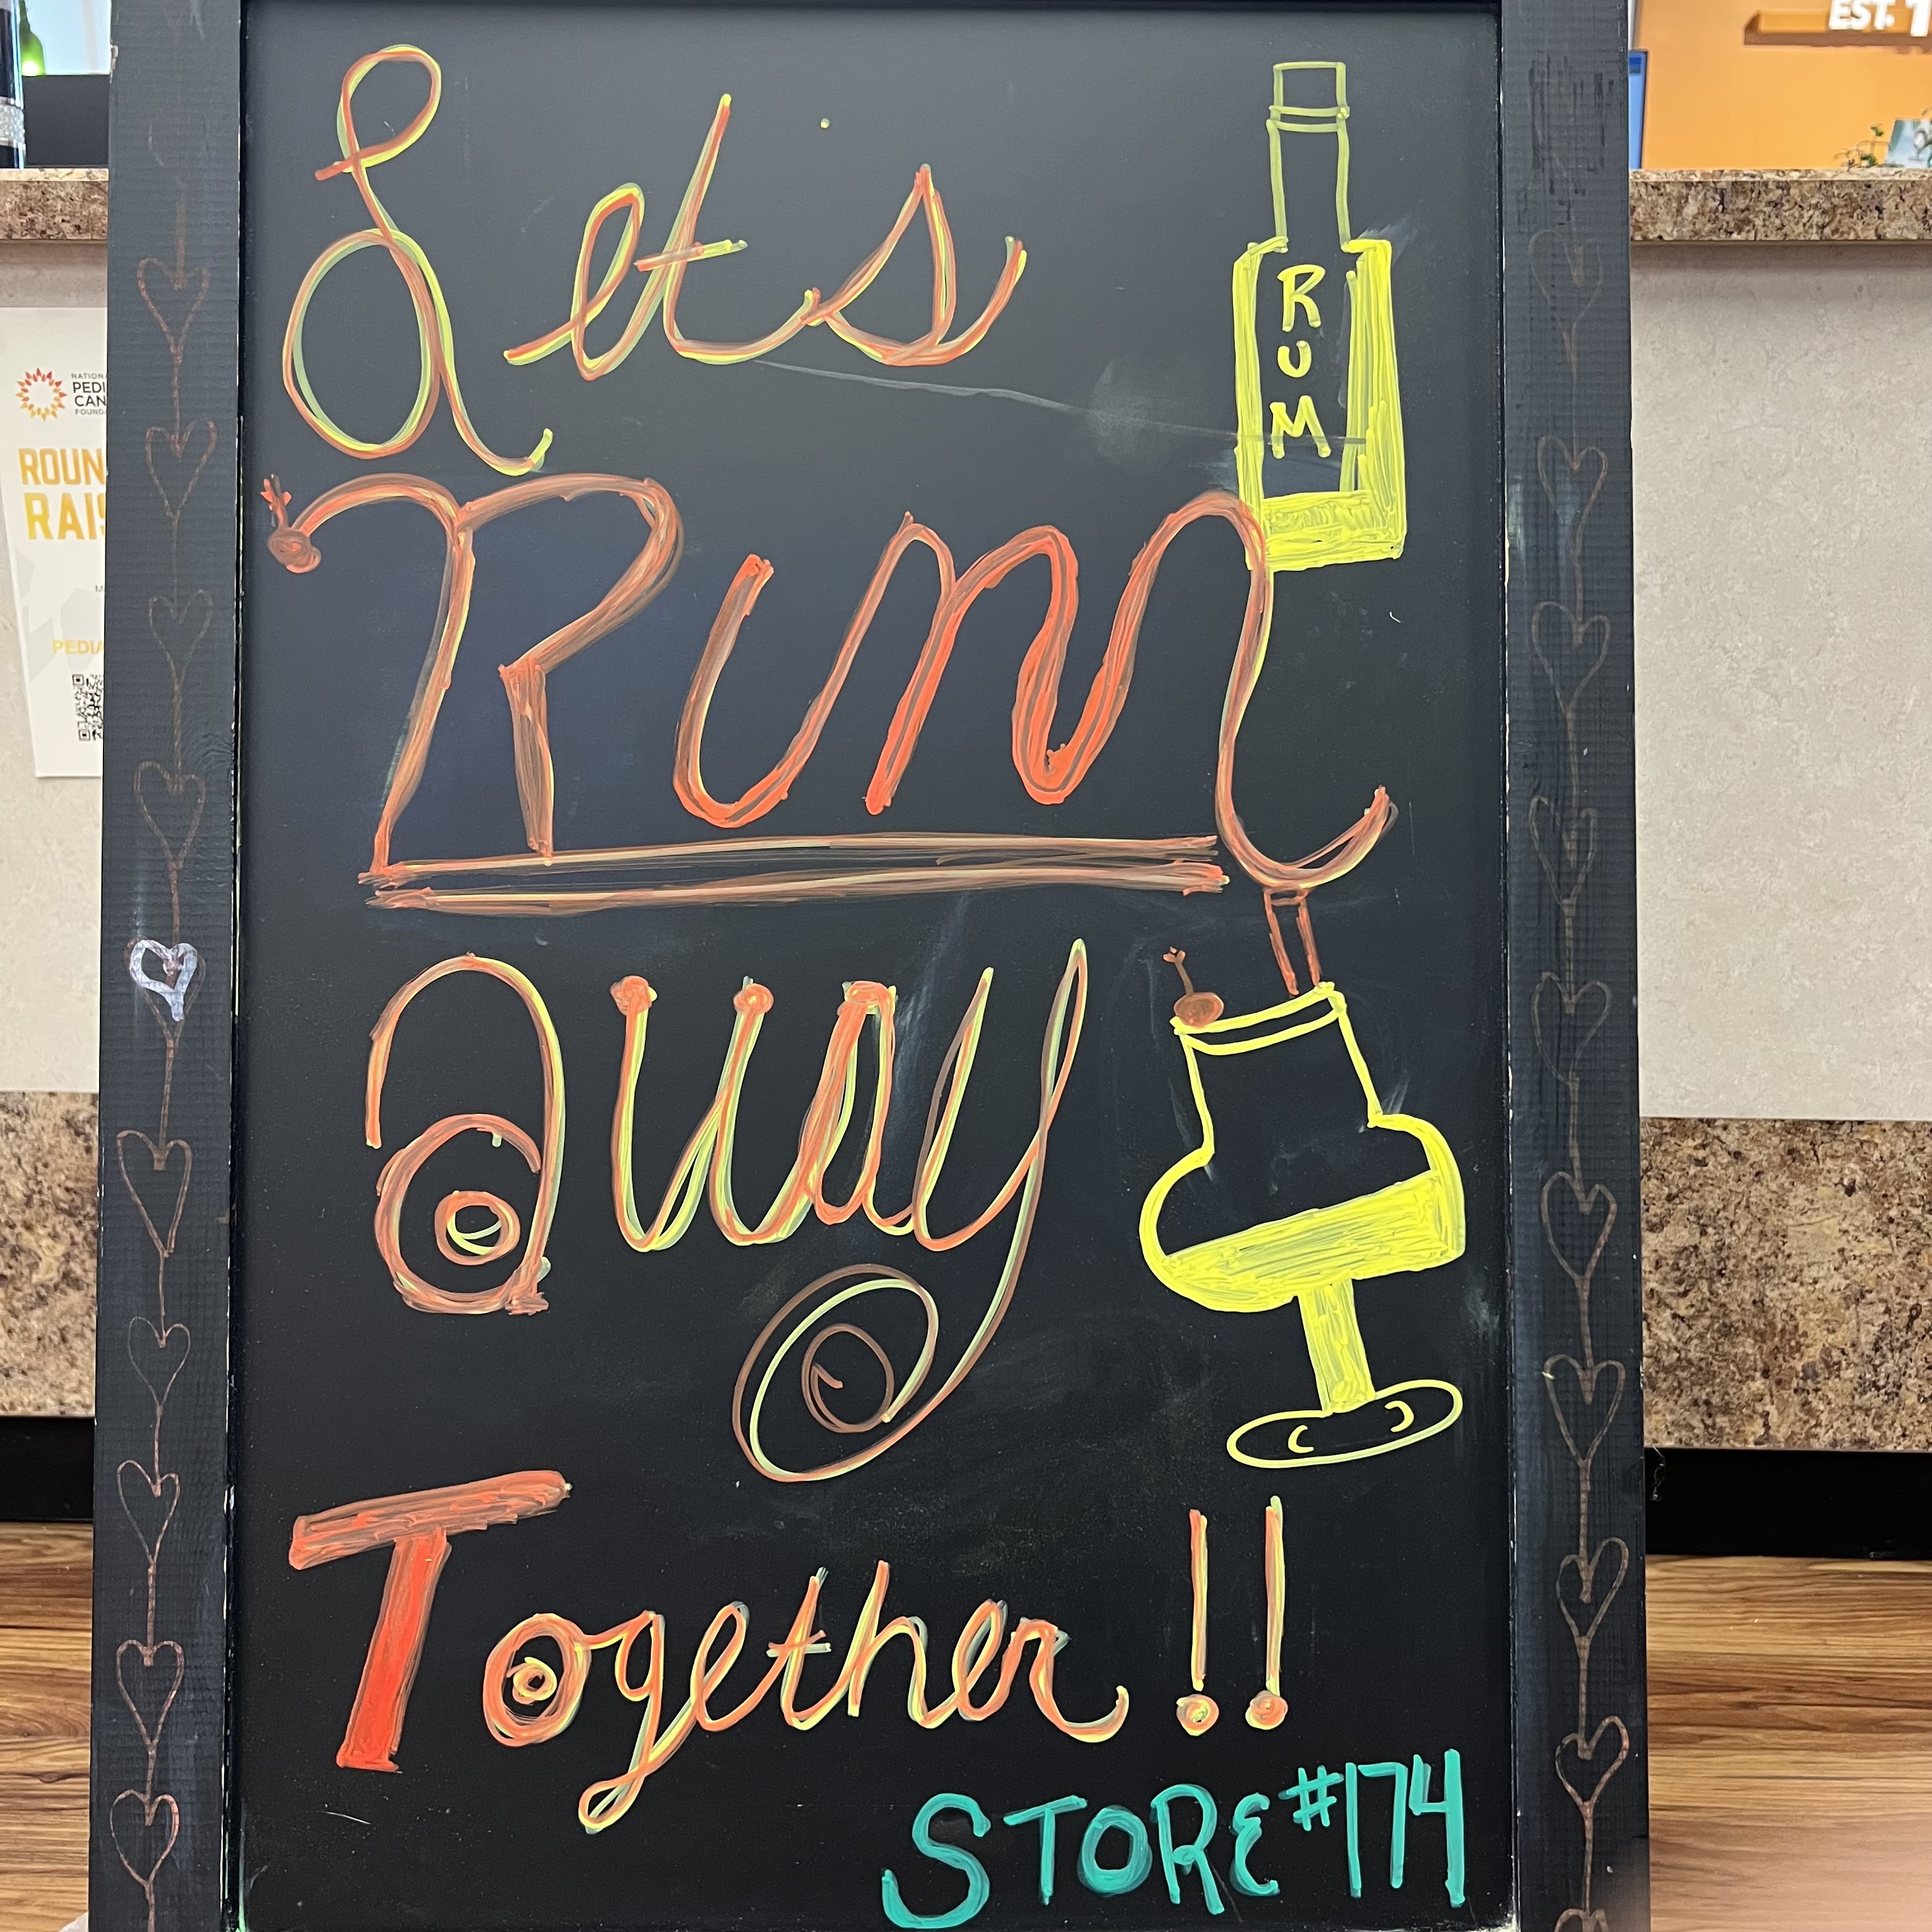 EST. 1
Let's
RUM
Rum
Away
Together!!
STORE #174
NATIONA
PEDI
CAN
FOUND
ROUN
RAIS
PEDIA